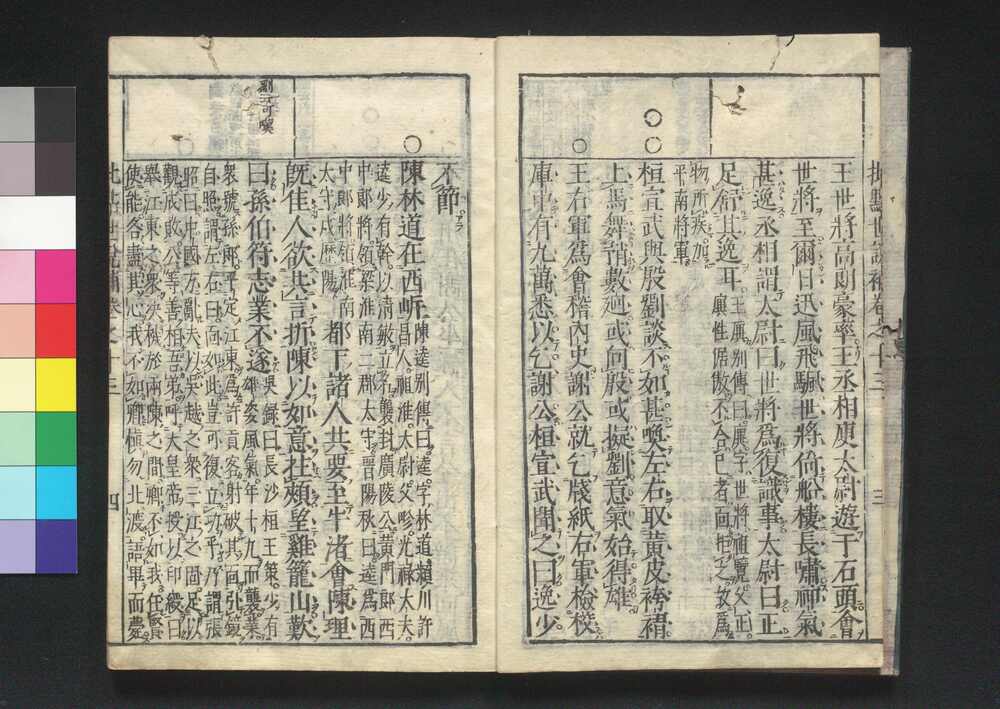 批點世說補卷之十三 三
王世將高朗豪率王丞相庾太尉遊于石頭會
世將至爾日迅風飛颿世將倚船樓長嘯神氣
甚逸丞相謂太尉曰世將為復識事太尉曰正
足舒其逸耳王廙別傳曰廙字世將祖覽父正
廙性倨傲不合己者面拒之故為
物所疾加
平南將軍
○○
桓宣武與殷劉談不如甚喚左右取黃皮袴褶
上馬舞矟數迴或向殷或擬劉意氣始得雄
○
王右軍為會稽內史謝公就乞牋紙右軍檢校
庫中有九萬悉以乞謝公桓宣武聞之曰逸少
不節
○
陳林道在西岍陳逵別傳曰逵字林道潁川許
昌人祖淮太尉父畛光祿大夫
逵少有幹以清敏立名襲封廣陵公黃門郎西
中郎將領梁淮南二郡太守晉陽秋曰逵為西
中郎將領淮南
太守戍歷陽
都下諸人共要至牛渚會陳理
既佳人欲共言折陳以如意拄頰望雞籠山歎
劉云可喚
曰孫伯符志業不遂吳錄曰長沙桓王策少有
雄姿風氣年十九而襲業
衆號孫郎平定江東為許貢客射破其面引鏡
自照謂左右曰面如此豈可復立功乎乃謂張
昭曰中國方亂夫以吳越之衆三江之固足以
觀成敗公等善相吾弟呼大皇帝授以印綬曰
舉江東之衆決機於兩陳之間卿不如我任賢
使能各盡其心我不如卿慎勿北渡語畢而薨
批點世說補卷之十三 四